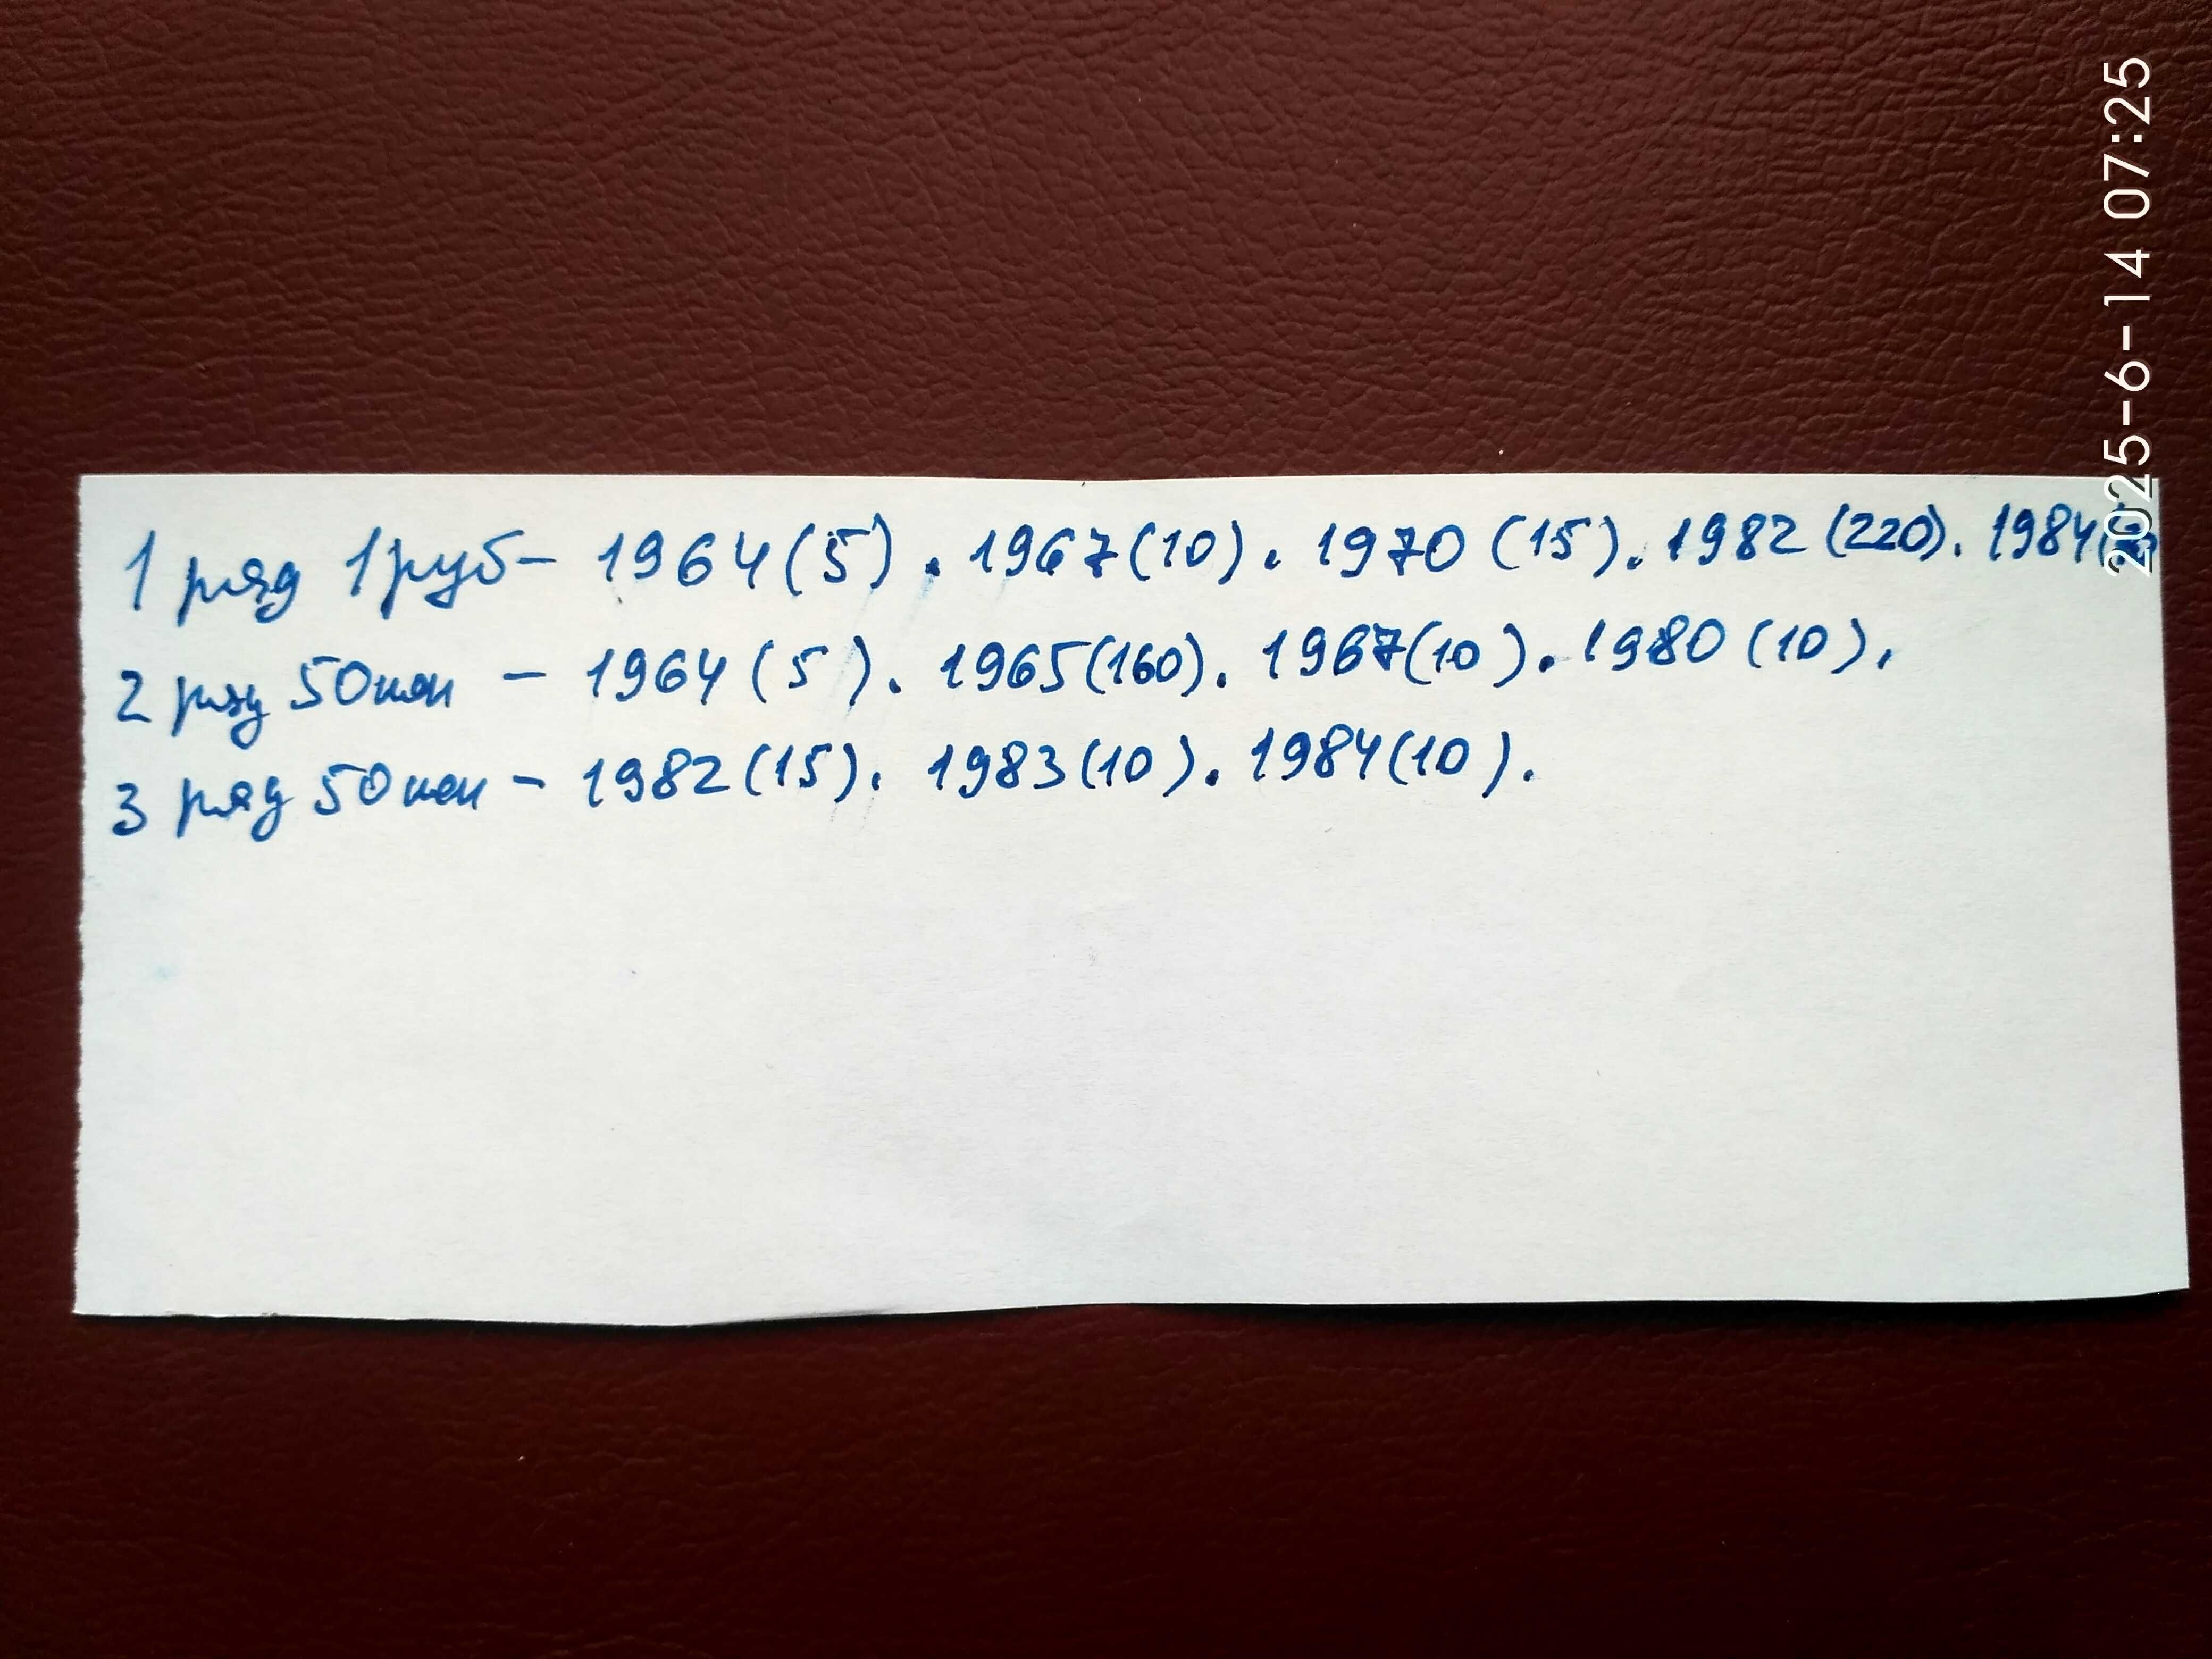 1 ряд 1руб- 1964(5). 1967(10). 1970(15). 1982(220). 1984
2 ряд 50коп - 1964(5). 1965(160). 1967(10). 1980(10).
3 ряд 50коп - 1982(15). 1983(10). 1984(10).
2025-6-14 07:25